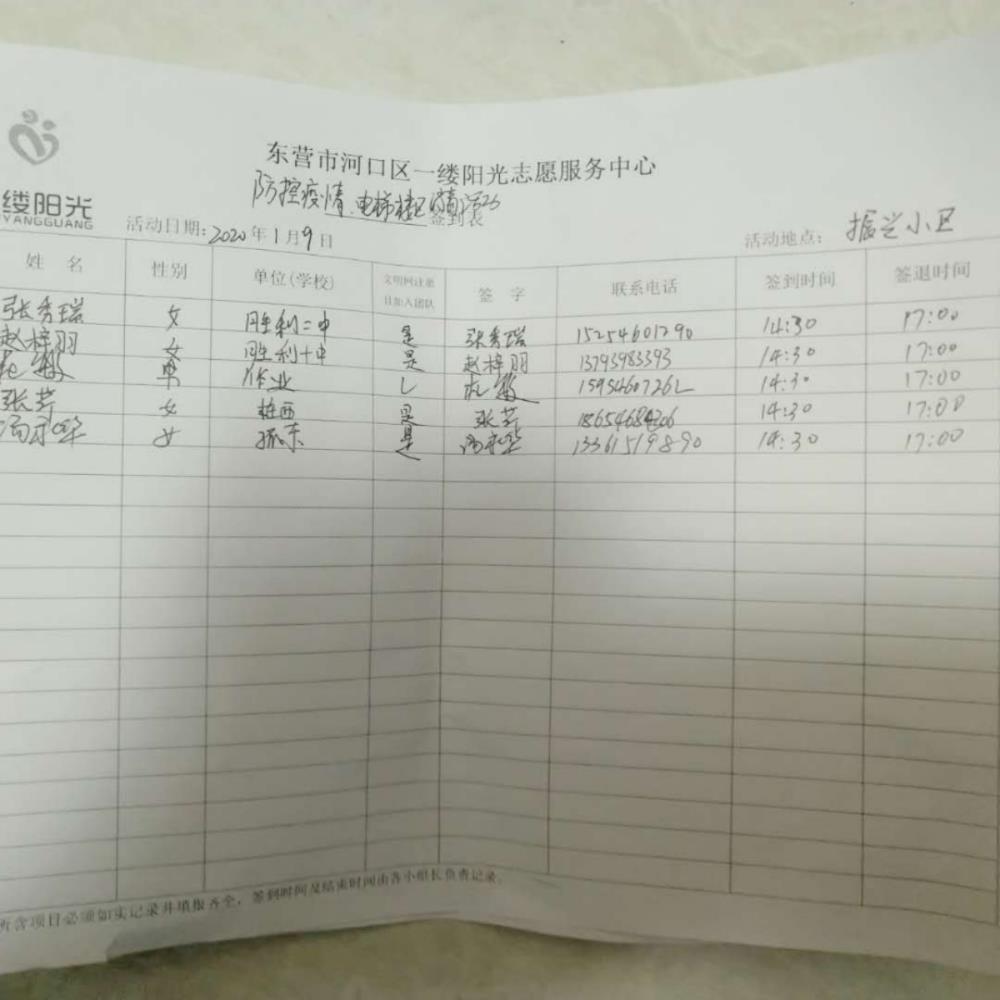 东营市河口区一缕阳光志愿服务中心
缕阳光
YANGGUANG
防控疫情 电梯楼区消毒
签到表
活动日期: 2020年1月9日 活动地点: 振兴小区
姓名 性别 单位(学校) 文明网注册且加入团队 签字 联系电话 签到时间 签退时间
张秀瑞 女 胜利二中 是 张秀瑞 15254601290 14:30 17:00
赵梓羽 女 胜利十中 是 赵梓羽 13793983393 14:30 17:00
男 作业 14:30 17:00
张芹 女 桩西 是 张芹 14:30 17:00
女 孤东 是 13361519890 14:30 17:00
所含项目必须如实记录并填报齐全,签到时间及结束时间由各小组长负责记录。